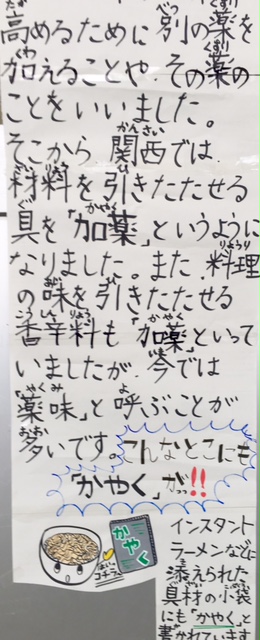 高めるために 別の薬を
加えることや、その薬の
ことをいいました。
そこから 関西では、
材料を引きたたせる
具を「加薬」というように
なりました。また、料理
の味を引きたたせる
香辛料も「加薬」といって
いましたが、今では
「薬味」と呼ぶことが
多いです。こんなとこにも
「かやく」がっ!!
かやく
インスタント
ラーメンなどに
添えられた
具材の小袋
にも「かやく」と
書かれています